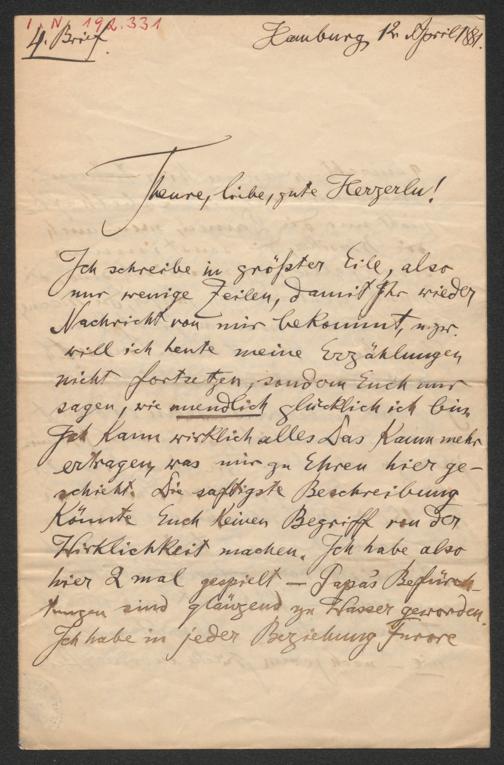 I. N. 192.331
4. Brief.
Hamburg, 12. April 1881.
Theure, liebe, gute Herzerln!
Ich schreibe in größter Eile, also
nur wenige Zeilen, damit Ihr wieder
Nachricht von mir bekommt, u. zw.
will ich heute meine Erzählungen
nicht fortsetzen, sondern Euch nur
sagen, wie unendlich glücklich ich bin.
Ich kann wirklich alles Das kaum mehr
ertragen, was mir zu Ehren hier ge-
schieht. Die saftigste Beschreibung
könnte Euch keinen Begriff von der
Wirklichkeit machen. Ich habe also
hier 2 mal gespielt — Papas Befürch-
tungen sind glänzend zu Wasser geworden.
Ich habe in jeder Beziehung Furore